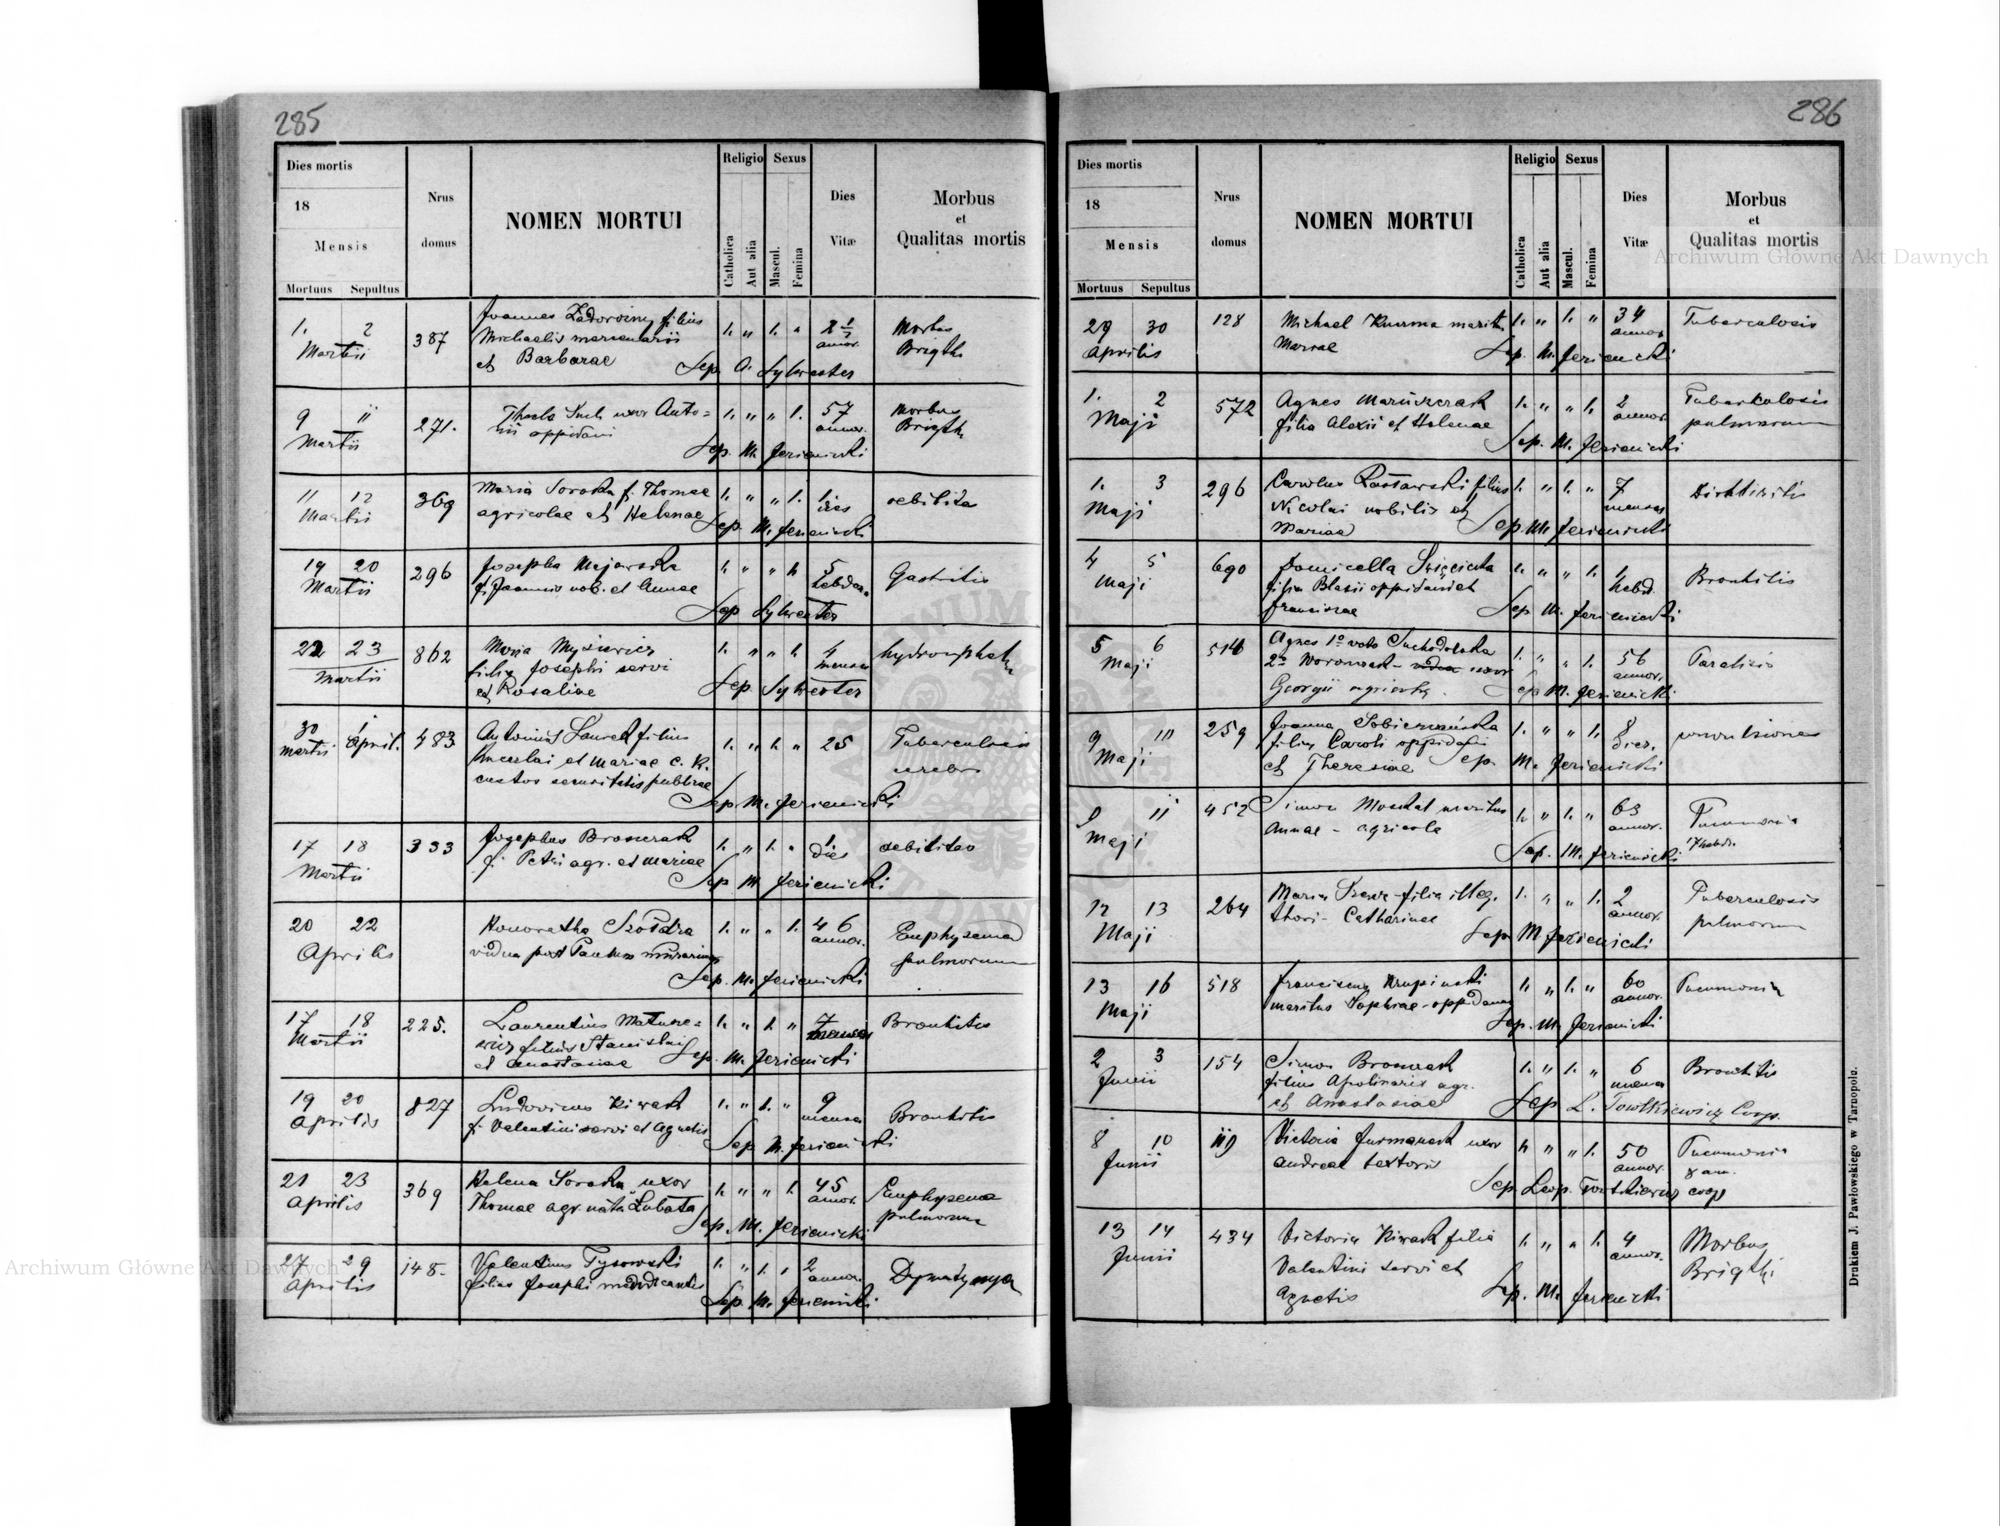 285
Dies mortis
18
Mensis
Mortuus Sepultus
Nrus
domus
NOMEN MORTUI
Religio
Catholica
Aut alia
Sexus
Mascul.
Femina
Dies
Vitæ
Morbus
et
Qualitas mortis
1. 2
Martii
387
Joannes filius
Michaelis
et Barbarae
1. „ 1. „
2 1/2
annor.
Morbus
Brigthi
Sep. A. Sylwester
9 11
Martii
271.
Thecla uxor Anto=
nii oppidani
1. „ „ 1.
57
annor.
Morbus
Brigthi
Sep. M. Jezienicki
11 12
Martii
369
Maria Soroka f. Thomae
agricolae et Helenae
1. „ „ 1.
1
dies
debilitas
Sep. M. Jezienicki
19 20
Martii
296
Josepha Majewska
f. Joannis nob. et Annae
1. „ „ 1.
5
hebdom.
Gastritis
Sep Sylwester
22 23
Martii
862
Maria Mysiewicz
filia Josephi servi
et Rosaliae
1. „ „ 1.
4
menses
Sep. Sylwester
30 1
Martii April.
483
Antonius Laurek filius
et Mariae c. k.
custos securitatis publicae
1. „ 1. „
25
Tuberculosis
Sep. M. Jezienicki
17 18
Martii
333
Josephus
f. Petri agr. et Mariae
1. „ 1. „
1
dies
debilitas
Sep. M. Jezienicki
20 22
Aprilis
Honoratha
vidua post
1. „ „ 1.
46
annor.
Emphysema
pulmorum
Sep. M. Jezienicki
17 18
Martii
225.
Laurentius Matuse=
wicz filius Stanislai
et Anastasiae
1. „ 1. „
7
menses
Bronkitis
Sep. M. Jezienicki
19 20
Aprilis
827
Ludovicus Kiwack
f. Valentini servi et Agnetis
1. „ 1. „
9
menses
Bronkitis
Sep. M. Jezienicki
21 23
Aprilis
369
Helena Soroka uxor
Thomae agr. nata Łabata
1. „ „ 1.
45
annor.
Emphysema
pulmorum
Sep. M. Jezienicki
27 29
Aprilis
148.
Valentinus Tysowski
filius Josephi
1. „ 1. „
2
annor.
Sep. M. Jezienicki
286
Dies mortis
18
Mensis
Mortuus Sepultus
Nrus
domus
NOMEN MORTUI
Religio
Catholica
Aut alia
Sexus
Mascul.
Femina
Dies
Vitæ
Morbus
et
Qualitas mortis
29 30
Aprilis
128
Michael maritus
Mariae
1. „ 1. „
34
annor.
Tuberculosis
Sep. M. Jezienicki
1. 2
Maji
572
Agnes Maruszczak
filia Alexii et Helenae
1. „ „ 1.
2
annor.
Tuberkulosis
pulmorum
Sep. M. Jezienicki
1. 3
Maji
296
Carolus Rasławski filius
Nicolai nobilis et
Mariae
1. „ 1. „
7
menses
Sep. M. Jezienicki
4 5
Maji
690
Domicella Święcicka
filia Blasii oppidani et
Franciscae
1. „ „ 1.
1
hebd.
Bronkitis
Sep. M. Jezienicki
5 6
Maji
514
Agnes 1o voto Suchodolska
2o uxor
Georgii agricolae.
1. „ „ 1.
56
annor.
Paralisis
Sep. M. Jezienicki
9 10
Maji
259
Joanna
filia Caroli oppidani
et Theresiae
1. „ „ 1.
8
dier.
convulsiones
Sep. M. Jezienicki
9 11
Maji
452
Simon Moskal maritus
Annae - agricola
1. „ 1. „
63
annor.
Pneumonia
Sep. M. Jezienicki
12 13
Maji
264
Maria filia illeg.
thori - Catharinae
1. „ „ 1.
2
annor.
Tuberculosis
pulmorum
Sep. M Jezienicki
13 16
Maji
518
Franciscus Krupinski
maritus Sophiae - oppidanus
1. „ 1. „
60
annor.
Pneumonia
Sep. M. Jezienicki
2 3
Junii
154
Simon
filius Apolinaris agr.
et Anastasiae
1. „ 1. „
6
menses
Bronkitis
Sep L. Towtkiewicz Coop.
8 10
Junii
119
Victoria Furmanek uxor
Andreae textoris
1. „ „ 1.
50
annor.
Pneumonia
Sep. Leop. Towtkiewicz coop
13 14
Junii
434
Victoria Kiwack filia
Valentini servi et
Agnetis
1. „ „ 1.
4
annor.
Morbus
Brigthi
Sep. M. Jezienicki
Drukiem J. Pawłowskiego w Tarnopolu.
Archiwum Główne Akt Dawnych
Archiwum Główne Akt Dawnych